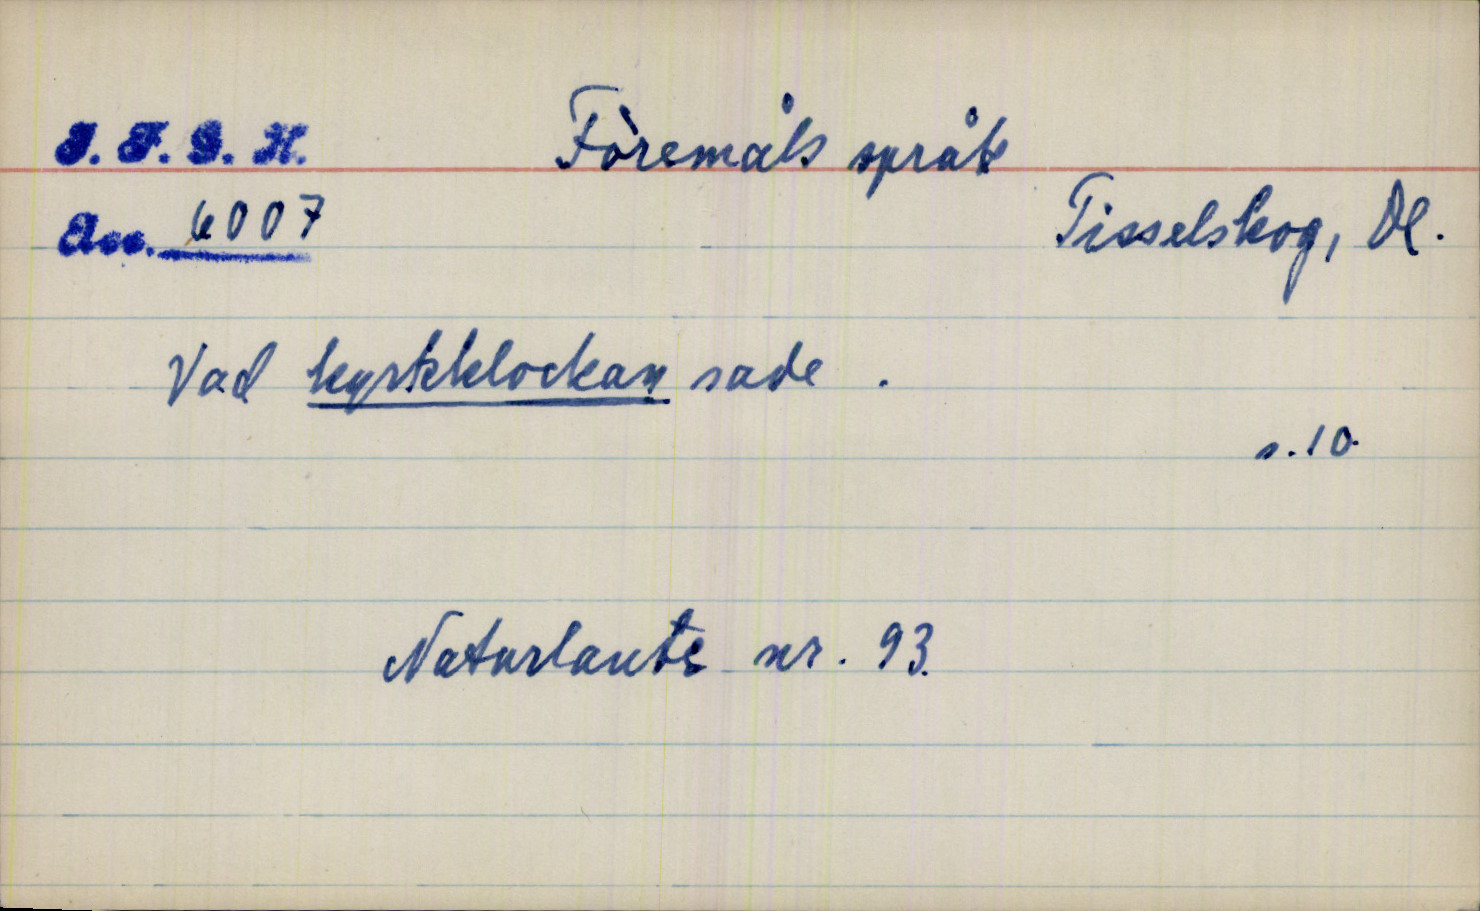 I. F. G. H.
Föremåls språk
Acc. 6007
Tisselskog, Dl.
Vad kyrkklockan sade .
s. 10.
Naturlaute nr. 93.